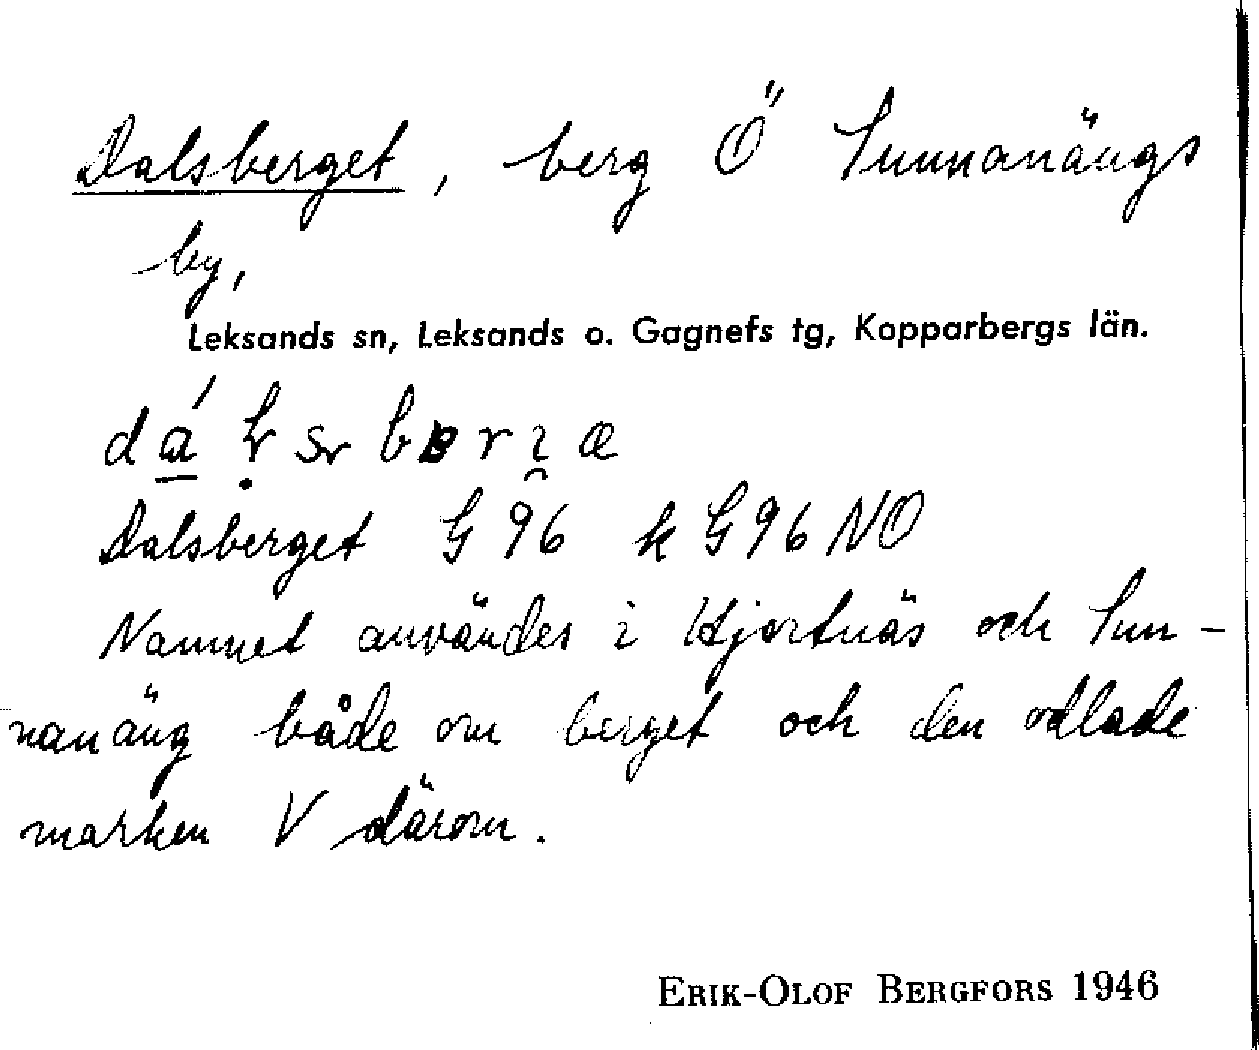 Dalsberget, berg Ö Sunnanängs
by,
Leksands sn, Leksands o. Gagnefs tg, Kopparbergs län.
Dalsberget G 96 k G96 NO
Namnet användes i Hjortnäs och Sun-
nanäng både om berget och den odlade
marken V därom.
ERIK-OLOF BERGFORS 1946